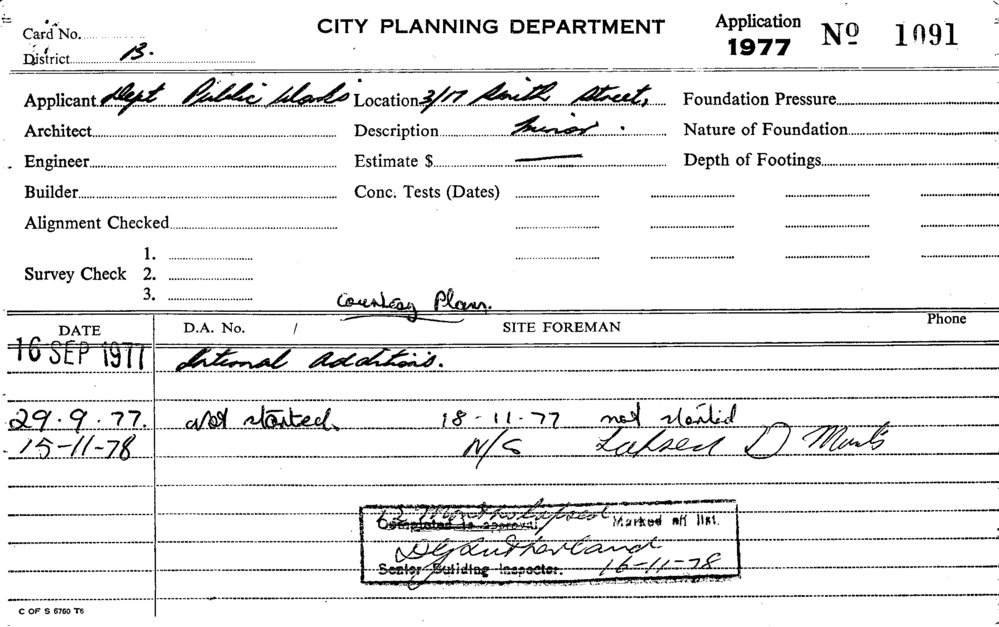 CITY PLANNING DEPARTMENT
Application 1977 No 1091
Card No.
District B.
Applicant Dept Public Works Location 3/17 Smith Street, Foundation Pressure
Architect Description Minor. Nature of Foundation
Engineer Estimate $ — Depth of Footings
Builder Conc. Tests (Dates)
Alignment Checked
1.
Survey Check 2.
3.
Courtesy Plan.
DATE D.A. No. / SITE FOREMAN Phone
16 SEP 1977 Internal Additions.
29.9.77. Not started. 18-11-77 not started
15-11-78 N/S Lapsed D
12 Months Lapsed
Completed to approval Marked off list.
DG Sutherland
Senior Building Inspector. 16-11-78
C OF S 5760 T6